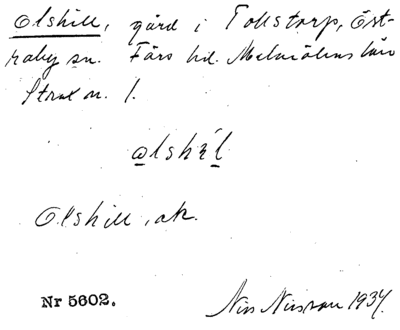 Olshill, gård i Tollstorp, Öst-
raby sn. Färs hd. Malmöhus län
Strax n. 1.
olshil
Olshill, ak.
Nr 5602.
Nils Nilsson 1934.